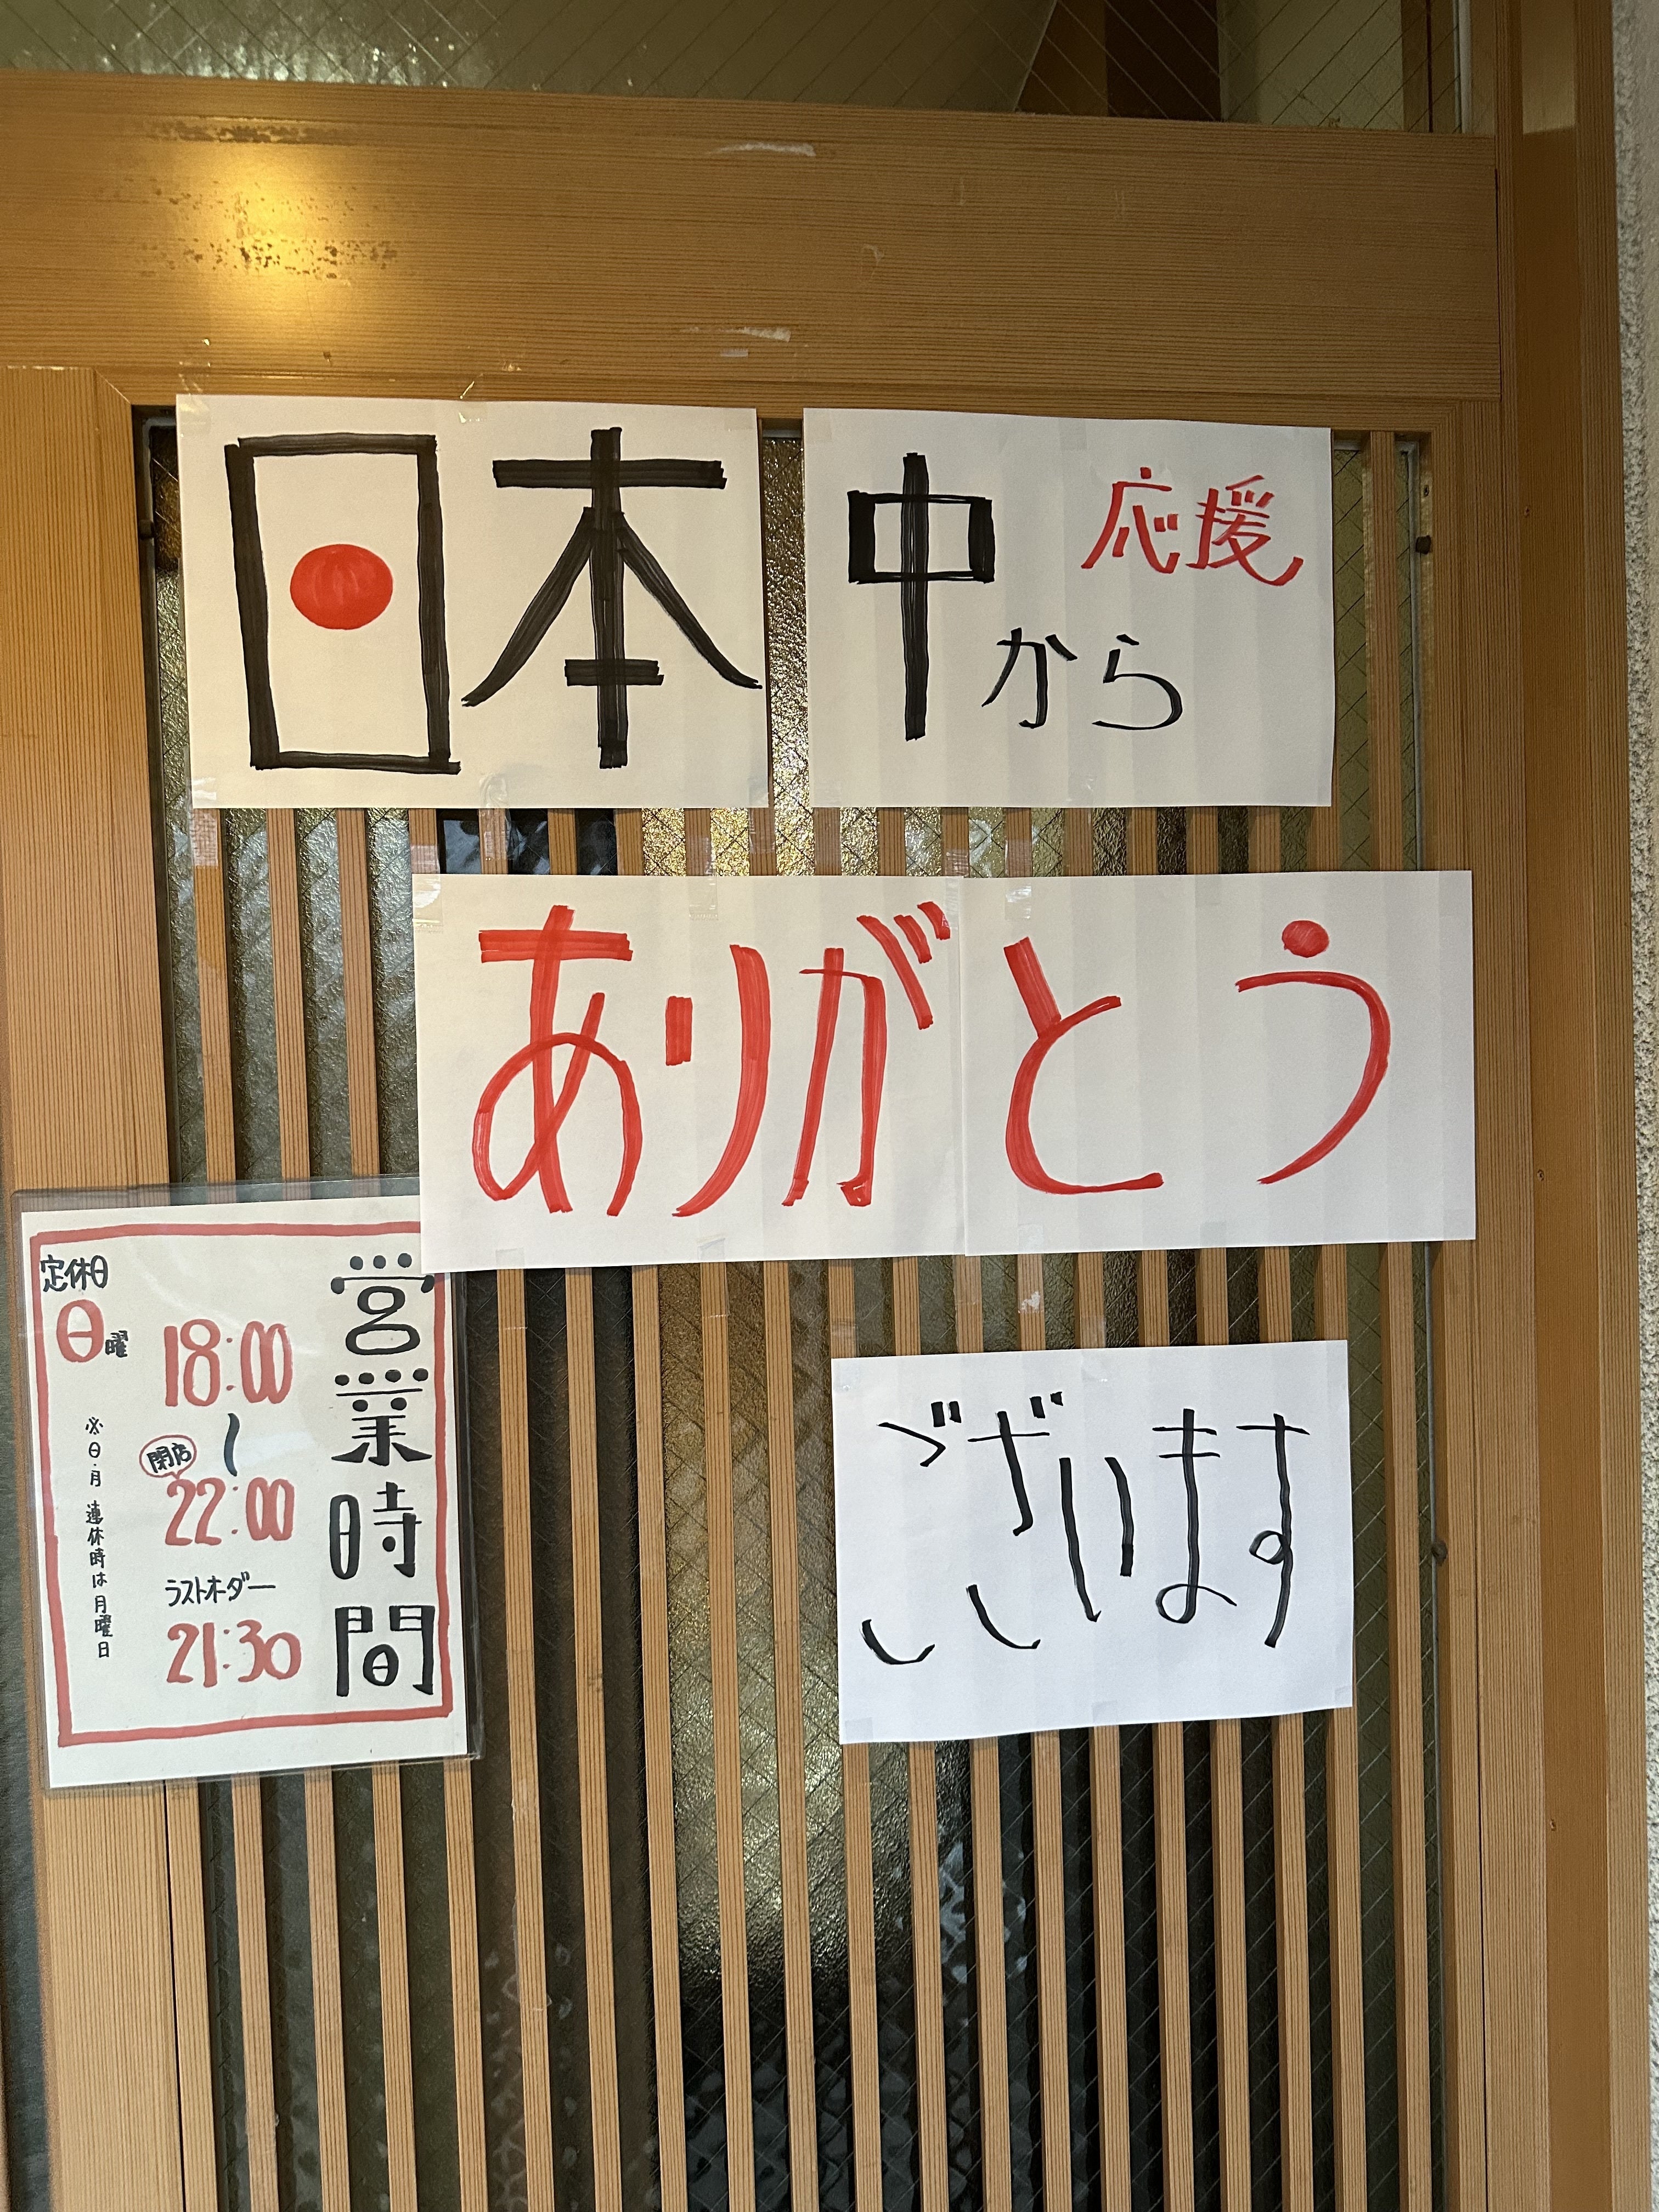 日本中から
応援
ありがとう
ございます
営業時間
18:00
〜
閉店
22:00
ラストオーダー
21:30
定休日
日曜
※日・月 連休時は月曜日